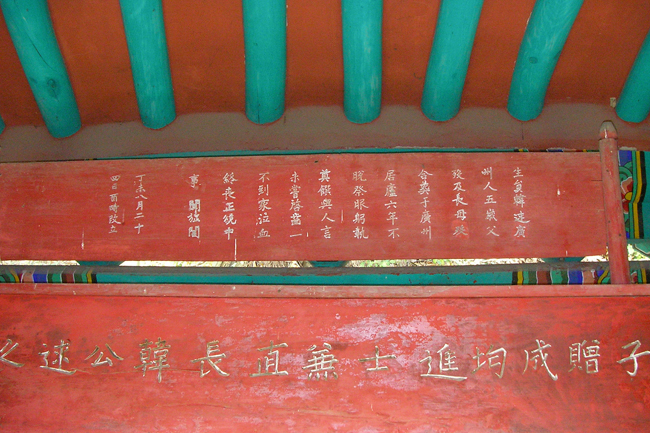 生員韓述廣
州人五歲父
歿及長母歿
合葬于廣州
居廬六年不
脫絰躬
奠饌與人言
未嘗啓齒一
不到家泣血
終喪正統中
事聞旌閭
丁未八月二十
四日酉時改立
子贈成均進士兼直長韓公述之